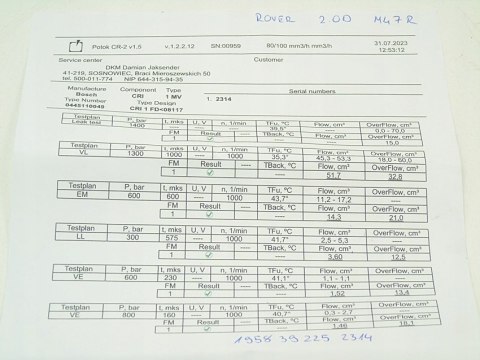 ROVER 2.0D M47R
Potok CR-2 v1.5 v.1.2.2.12 SN:00959 80/100 mm3/h mm3/h 31.07.2023
12:53:12
Service center Customer
DKM Damian Jaksender
41-219, SOSNOWIEC, Braci Mieroszewskich 50
tel. 500-011-774 NIP 644-315-94-35
Manufacture Component Type Serial numbers
Bosch CRI 1 MV
Type Number Type Design 1. 2314
0445110049 CRI 1 FD<08117
Testplan P, bar t, mks U, V n, 1/min TFu, ºC Flow, cm³ OverFlow, cm³
Leak test 1400 ---- ---- ---- 39,5" ---- 0,0 - 70,0
FM Result TBack, ºC Flow, cm³ OverFlow, cm³
1 ---- ---- 15,0
Testplan P, bar t, mks U, V n, 1/min TFu, ºC Flow, cm³ OverFlow, cm³
VL 1300 1000 ---- 1000 35,3" 45,3 - 53,3 18,0 - 60,0
FM Result TBack, ºC Flow, cm³ OverFlow, cm³
1 ---- 51,7 32,8
Testplan P, bar t, mks U, V n, 1/min TFu, ºC Flow, cm³ OverFlow, cm³
EM 600 600 ---- 1000 43,7" 11,2 - 17,2 ----
FM Result TBack, ºC Flow, cm³ OverFlow, cm³
1 ---- 14,3 21,0
Testplan P, bar t, mks U, V n, 1/min TFu, ºC Flow, cm³ OverFlow, cm³
LL 300 575 ---- 1000 41,7" 2,5 - 5,3 ----
FM Result TBack, ºC Flow, cm³ OverFlow, cm³
1 ---- 3,60 12,5
Testplan P, bar t, mks U, V n, 1/min TFu, ºC Flow, cm³ OverFlow, cm³
VE 600 230 ---- 1000 41,1" 1,1 - 1,1 ----
FM Result TBack, ºC Flow, cm³ OverFlow, cm³
1 ---- 1,52 13,4
Testplan P, bar t, mks U, V n, 1/min TFu, ºC Flow, cm³ OverFlow, cm³
VE 800 160 ---- 1000 40,7" 0,3 - 2,7 ----
FM Result TBack, ºC Flow, cm³ OverFlow, cm³
1 ---- 1,46 18,1
1958 39 225 2314